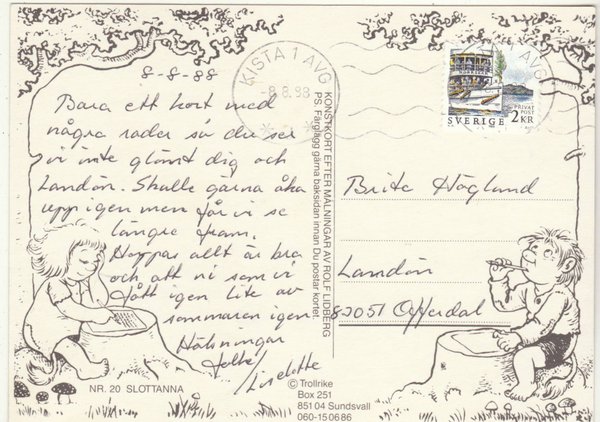 8-8-88
Bara ett kort med
några rader så du ser
vi inte glömt dig och
Landön. Skulle gärna åka
upp igen men får vi se
längre fram.
Hoppas allt är bra
och att ni som vi
fått igen lite av
sommaren igen
Hälsningar
Liselotte
NR. 20 SLOTTANNA
KONSTKORT EFTER MÅLNINGAR AV ROLF LIDBERG
PS. Färglägg gärna baksidan innan Du postar kortet.
© Trollrike
Box 251
851 04 Sundsvall
060-15 06 86
KISTA 1 AVG
-8.8.88
AVG
PRIVAT
POST
SVERIGE 2 KR
Brite Höglund
Landön
82051 Offerdal